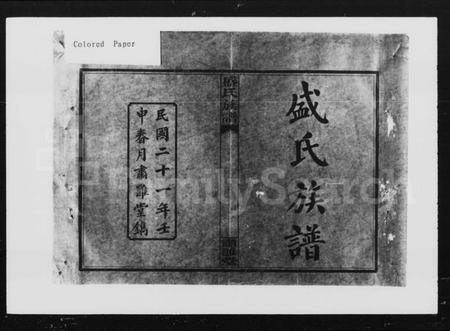 Colored Paper
盛氏族譜
盛氏族譜
民國二十一年壬
申春月肅雝堂鐫
FamilySearch